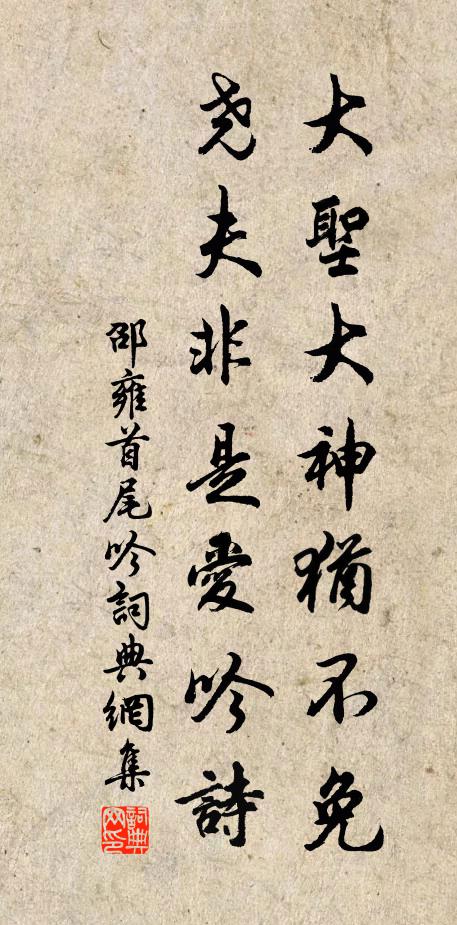 大聖大神猶不免
尧夫非是愛吟詩
邵雍首尾吟詞典網集
詞典網印